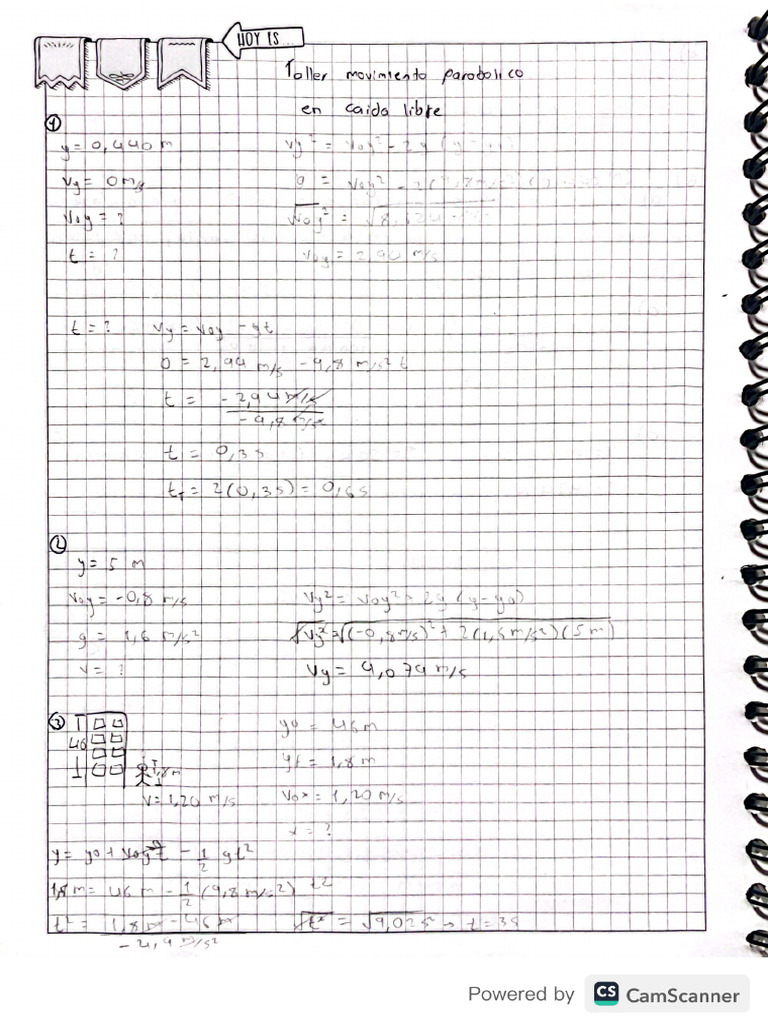 HOY ES...
Taller movimiento parabolico
en caida libre
①
y = 0,440 m
vy² = voy² - 2g (y -
vy = 0 m/s
0 = voy² - 2(9,8
voy = ?
√voy² = √8,624
t = ?
voy = 2,94 m/s
t = ? vy = voy - gt
0 = 2,94 m/s - 9,8 m/s² t
t = -2,94 m/s
-9,8 m/s
t = 0,3 s
tt = 2(0,3s) = 0,6s
②
y = 5 m
voy = -0,8 m/s
vy² = voy² - 2g (y-y0)
g = 1,6 m/s²
√vy² = √(-0,8 m/s)² + 2(1,6 m/s²)(5 m)
v = ?
vy = 4,079 m/s
③
46
1,8m
v = 1,20 m/s
y0 = 46 m
yf = 1,8 m
vox = 1,20 m/s
x = ?
y = y0 + voy t - 1/2 gt²
1,8 m = 46 m - 1/2 (9,8 m/s²) t²
t² = 1,8 m - 46 m
-4,9 m/s²
√t² = √9,02s² → t = 3s
Powered by CS CamScanner